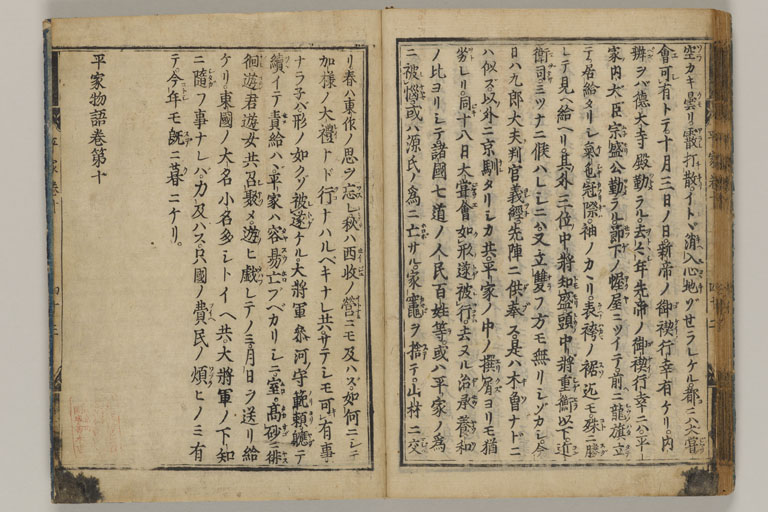 空カキ曇リ霰打散イトヾ消入心地ゾせラレケル都ニハ大嘗
會可有トテ十月三日ノ日新帝ノ御禊行幸有ケリ内
辨ヲバ德大寺殿勤ラル去々年先帝ノ御禊行幸ニハ平
家内大臣宗盛公勤ラル節下ノ幄屋ニツイテ前ニ龍旗立
テ居給タリシ氣色冠際袖ノカヽリ表袴ノ裾迄モ殊ニ勝
レテ見ヘ給ヘリ其外三位中將知盛頭中將重衡以下近
衛司ミツナニ候ハレシニハ又立雙フ方モ無リシゾカシ今
日ハ九郎大夫判官義經先陣ニ供奉ス是ハ木曽ナドニ
ハ似ズ以外ニ京馴タリシカ共平家ノ中ノ撰屑ヨリモ猶
劣レリ同十八日大嘗會如形遂被行去ヌル治承養和
ノ比ヨリシテ諸國七道ノ人民百姓等或ハ平家ノ為
ニ被惱或ハ源氏ノ為ニ亡サル家竈ヲ捨テ山林ニ交
リ春ハ東作ノ思ヲ忘レ秋ハ西收ノ營ニモ及ハズ如何ニシテ
加樣ノ大禮ナド行ナハルベキナレ共サテシモ可有事
ナラ子ハ形ノ如クゾ被遂ケル大將軍參河守範頼軈テ
續イテ責給ハヾ平家ハ容易亡ブベカリシニ室髙砂ニ徘
徊遊君遊女共召聚メ遊ヒ戯レテノミ月日ヲ送リ給
ケリ東國ノ大名小名多シトイヘ共大將軍ノ下知
ニ隨フ事ナレハ力及ハズ只國ノ費民ノ煩ヒノミ有
テ今年モ既ニ暮ニケリ。
平家物語巻第十